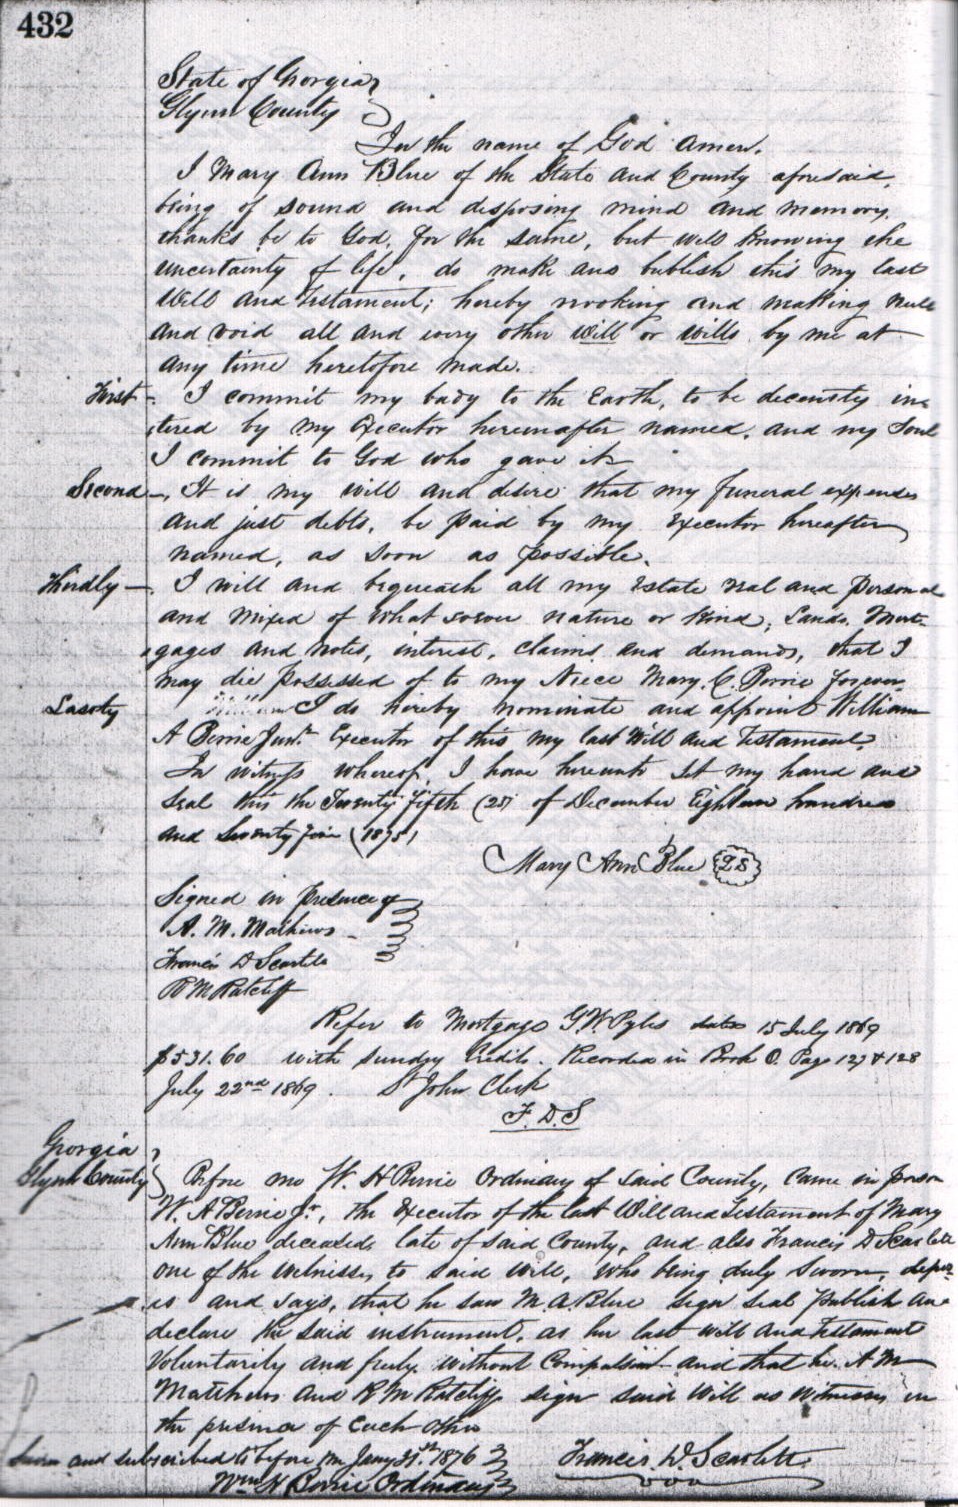 432
State of Georgia
Glynn County
In the name of God Amen.
I Mary Ann Blue of the State and County aforesaid,
being of sound and disposing mind and memory,
thanks be to God, for the same, but well knowing the
uncertainty of life, do make and publish this my last
Will and Testament; hereby revoking and making null
and void all and every other Will or Wills by me at
any time heretofore made.
First -. I commit my body to the Earth, to be decently in=
tered by my Executor hereinafter named, and my Soul
I commit to God who gave it
Second -. It is my will and desire that my funeral expenses
and just debts, be paid by my Executor hereafter
named, as soon as possible.
Thirdly -. I will and bequeath all my Estate real and personal
and mixed of whatsoever nature or kind; Lands, Mort=
gages and notes, interest, claims and demands, that I
may die possessed of to my Niece Mary. C. Berrie forever
Lastly I do hereby nominate and appoint William
A Berrie Junr. Executor of this my last Will and Testament.
In witness whereof, I have hereunto set my hand and
Seal this the Twenty fifth (25) of December Eighteen hundred
and Seventy five (1875)
Mary Ann Blue LS
Signed in presence of
A. M. Mathews
Francis D Scarlett
R M Ratcliff
Refer to Mortgage G W Pyles date 15 July 1869
$531.60 with sundry Credits. Recorded in Book O. Page 127 & 128
July 22nd 1869. St John Clerk
F. D. S
Georgia
Glynn County Before me W. H Berrie Ordinary of said County, came in person
W. A Berrie Jr, the Executor of the last Will and Testament of Mary
Ann Blue deceased, late of said County, and also Francis D Scarlett
one of the witnesses to said Will, who being duly sworn, depos
es and says, that he saw M. A. Blue sign seal publish and
declare the said instrument, as her last will and Testament
Voluntarily and freely without Compulsion and that he. A M
Matthews and R M Ratcliff sign said Will as witnesses in
the presence of Each other
Sworn and subscribed to before me Jany 31st 1876 Francis D. Scarlett
Wm H Berrie Ordinary